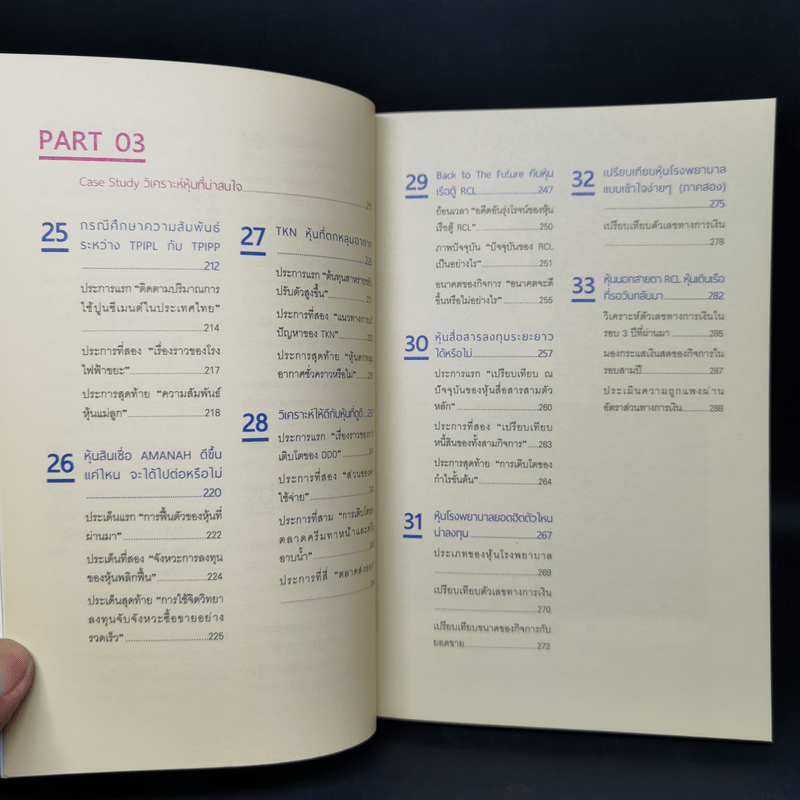 PART 03
Case Study วิเคราะห์หุ้นที่น่าสนใจ
25 กรณีศึกษาความสัมพันธ์
ระหว่าง TPIPL กับ TPIPP
212
ประการแรก "ติดตามปริมาณการ
ใช้ปูนซีเมนต์ในประเทศไทย"
214
ประการที่สอง "เรื่องราวของโรง
ไฟฟ้าขยะ" 217
ประการสุดท้าย "ความสัมพันธ์
หุ้นแม่ลูก" 218
26 หุ้นสินเชื่อ AMANAH ดีขึ้น
แค่ไหน จะได้ไปต่อหรือไม่
220
ประเด็นแรก "การฟื้นตัวของหุ้นที่
ผ่านมา" 222
ประเด็นที่สอง "จังหวะการลงทุน
ของหุ้นพลิกฟื้น" 224
ประเด็นสุดท้าย "การใช้จิตวิทยา
ลงทุนจับจังหวะซื้อขายอย่าง
รวดเร็ว" 225
27 TKN หุ้นที่ตกหลุมอากาศ
ประการแรก "ต้นทุนสาหร่าย
ปรับตัวสูงขึ้น"
ประการที่สอง "แนวทางการแก้
ปัญหาของ TKN"
ประการสุดท้าย "หุ้นตกหลุม
อากาศชั่วคราวหรือไม่"
28 วิเคราะห์ให้ดีกับหุ้นที่ดูดี
ประการแรก "เรื่องราวของการ
เติบโตของ DDD"
ประการที่สอง "ส่วนของ
ใช้จ่าย"
ประการที่สาม "การเติบโต
ตลาดครีมทาหน้าและ
อาบน้ำ"
ประการที่สี่ "ตลาดส่งออก
29 Back to The Future กับหุ้น
เรือตู้ RCL 247
ย้อนเวลา "อดีตอันรุ่งโรจน์ของหุ้น
เรือตู้ RCL" 250
ภาพปัจจุบัน "ปัจจุบันของ RCL
เป็นอย่างไร" 251
อนาคตของกิจการ "อนาคตจะดี
ขึ้นหรือไม่อย่างไร" 255
30 หุ้นสื่อสารลงทุนระยะยาว
ได้หรือไม่ 257
ประการแรก "เปรียบเทียบ ณ
ปัจจุบันของหุ้นสื่อสารสามตัว
หลัก" 260
ประการที่สอง "เปรียบเทียบ
หนี้สินของทั้งสามกิจการ" 263
ประการสุดท้าย "การเติบโตของ
กำไรขั้นต้น" 264
31 หุ้นโรงพยาบาลยอดฮิตตัวไหน
น่าลงทุน 267
ประเภทของหุ้นโรงพยาบาล
269
เปรียบเทียบตัวเลขทางการเงิน
270
เปรียบเทียบขนาดของกิจการกับ
ยอดขาย 272
32 เปรียบเทียบหุ้นโรงพยาบาล
แบบเข้าใจง่ายๆ (ภาคสอง)
275
เปรียบเทียบตัวเลขทางการเงิน
278
33 หุ้นนอกสายตา RCL หุ้นเดินเรือ
ที่รอวันกลับมา 282
วิเคราะห์ตัวเลขทางการเงินใน
รอบ 3 ปีที่ผ่านมา 286
มองกระแสเงินสดของกิจการใน
รอบสามปี 287
ประเมินความถูกแพงผ่าน
อัตราส่วนทางการเงิน 288